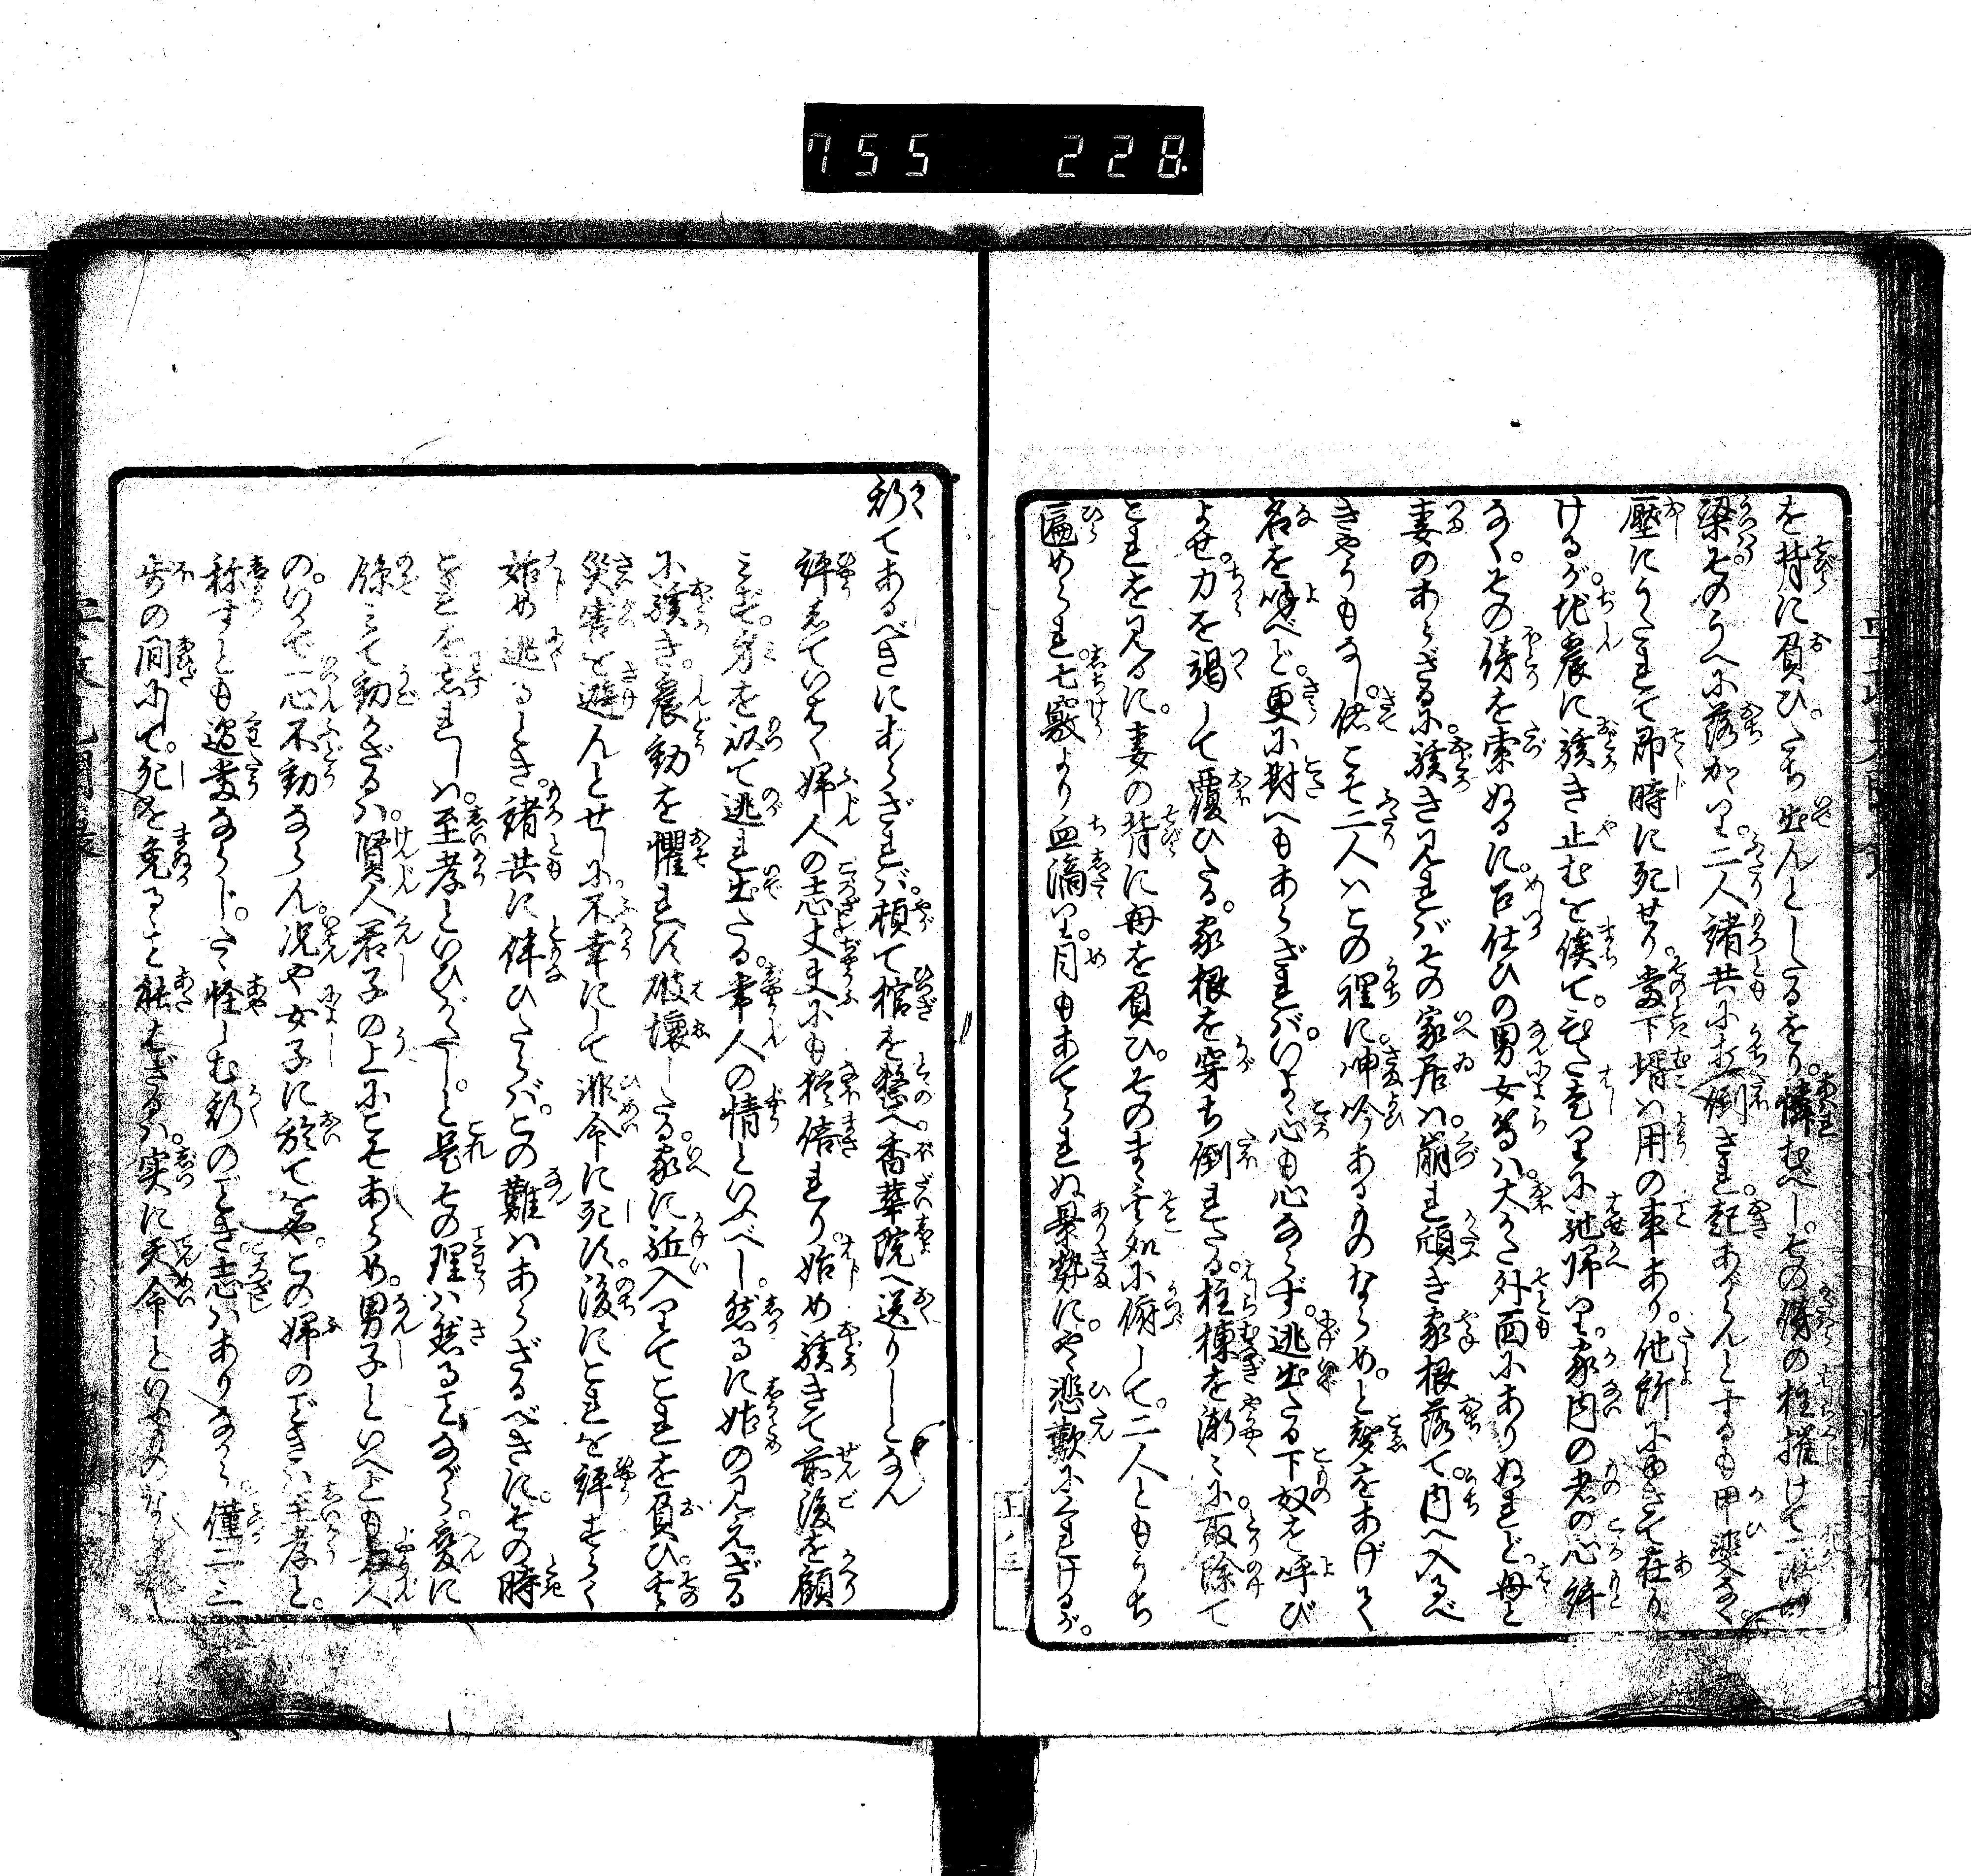 755 228
を背に負ひ。立出んとしたるをり。憐むべし。その傍の柱摧けて
梁そのうへに落かゝり。二人諸共に打倒され。起あがらんとするも甲斐なく
壓にうたれて即時に死せり。當下壻は用の事あり。他所にゆきて在り
けるが。地震に駭き止むを俟て。ひた走りに馳帰り。家内の老の心
なく。その傍を索ぬるに。召仕ひの男女等は大かた外面にありぬれど。母と
妻のあらざるに。駭き見ればその家居は。崩れ頽き家根落て。内へ入るべ
きやうもなし。偖こそ二人はこの裡に。呻吟あるものならめ。と聲をあげて
名を喚べど。更に対へもあらざれば。いよゝ心も心ならず。迯出たる下奴を呼び
よせ。力を竭して覆ひたる。家根を穿ち倒れたる。柱棟を漸々に。取除て
これを見るに。妻の背に母を負ひ。そのまゝ其処に俯して。二人ともうち
匾められ。七竅より血滴り。目もあてられぬ景勢に。やゝ悲歎にくれけるが。
斯てあるべきにあらざれば。頓て棺を整へ。香華院へ送りしとなん
評していはく婦人の志丈夫にも猶倍れり。始め駭きて前後を顧
みず。身を以て逃れ出たる。常人の情といふべし。然るに姑の見えざる
に駭き。震動を懼れず破壊したる。家に延入りてこれを負ひ。其
災害を避んとせしに。不幸にして非命に死す。後にこれを評すらく
始め逃るとき。諸共に伴ひたらば。この難はあらざるべきに。その時
これを忘れしは。至孝といひがたしと。是その理は然ることながら。変に
臨みて動かざるは。賢人君子の上にこそあらめ。男子といへども
の。いかで一心不動ならん。况や女子に於てをや。この婦のごときは至孝と。
称すとも過當ならじ。たゞ怪しむ斯のごとき。志はありながら。僅二三
歩の間にて。死を免るゝこと能はざるは。実に天命といふものな